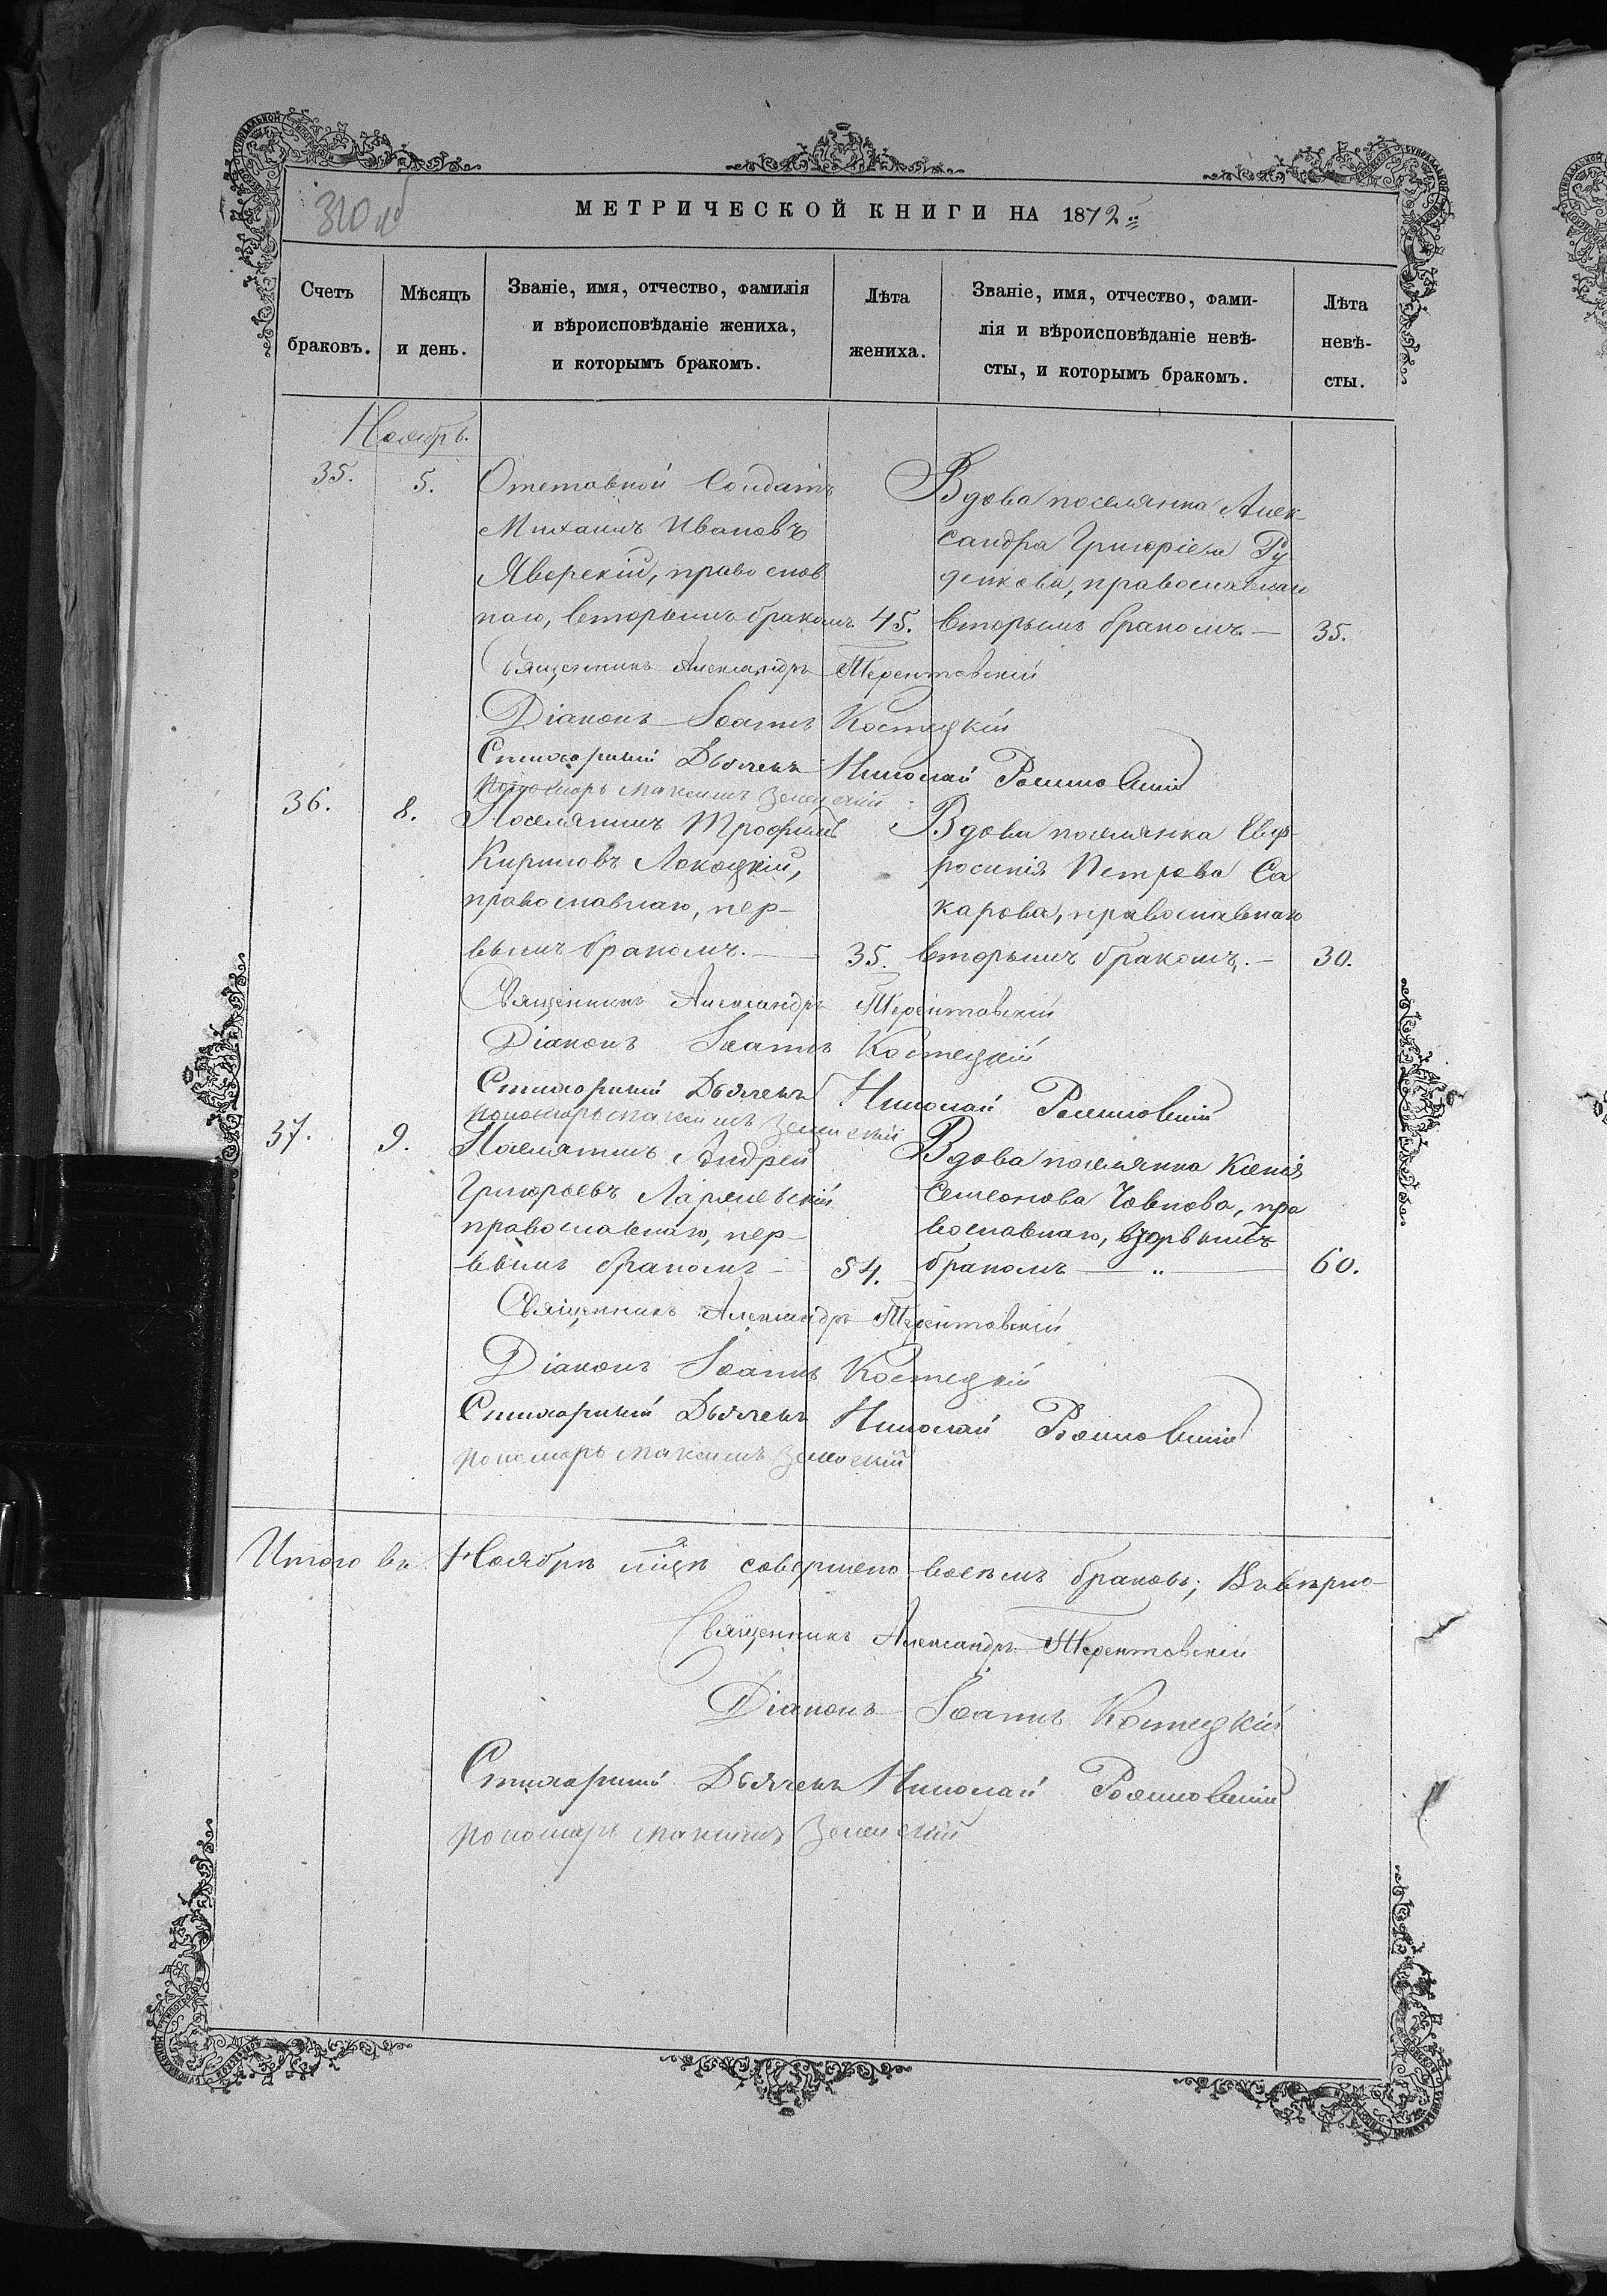 310 об
МЕТРИЧЕСКОЙ КНИГИ НА 1872
Счетъ браковъ.
Мѣсяцъ и день.
Званіе, имя, отчество, фамилія
и вѣроисповѣданіе жениха,
и которымъ бракомъ.
Лѣта жениха.
Званіе, имя, отчество, фами-
лія и вѣроисповѣданіе невѣ-
сты, и которымъ бракомъ.
Лѣта
невѣ-
сты.
Ноябрь.
35. 5.
Отставной Солдатъ
Михаилъ Ивановъ
Яворскій, православ
наго, вторымъ бракомъ. 45.
Вдова поселянка Алек-
сандра Григоріева Ру
денкова, православнаго
вторымъ бракомъ. — 35.
Священникъ Александръ Терентовскій
Діаконъ Іоаннъ Костецкій
Стихарный Дьячекъ Николай
Пономарь Максимъ
36. 8.
Поселянинъ Трофимъ
Кириловъ Локоцкій,
православнаго, пер-
вымъ бракомъ. — 35.
Вдова поселянка Евф-
росинія Петрова Са
карова, православнаго
вторымъ бракомъ. — 30.
Священникъ Александръ Терентовскій
Діаконъ Іоаннъ Костецкій
Стихарный Дьячекъ Николай
пономарь Максимъ
37. 9.
Поселянинъ Андрей
Григорьевъ
православнаго, пер-
вымъ бракомъ — 54.
Вдова поселянка Ксенія
Семеонова Човпова, пра
вославнаго, вторымъ
бракомъ — „ — 60.
Священникъ Александръ Терентовскій
Діаконъ Іоаннъ Костецкій
Стихарный Дьячекъ Николай
пономарь Максимъ
Итого въ Ноябрѣ мцѣ совершено восемь браковъ;
Священникъ Александръ Терентовскій
Діаконъ Іоаннъ Костецкій
Стихарный Дьячекъ Николай
пономарь Максимъ